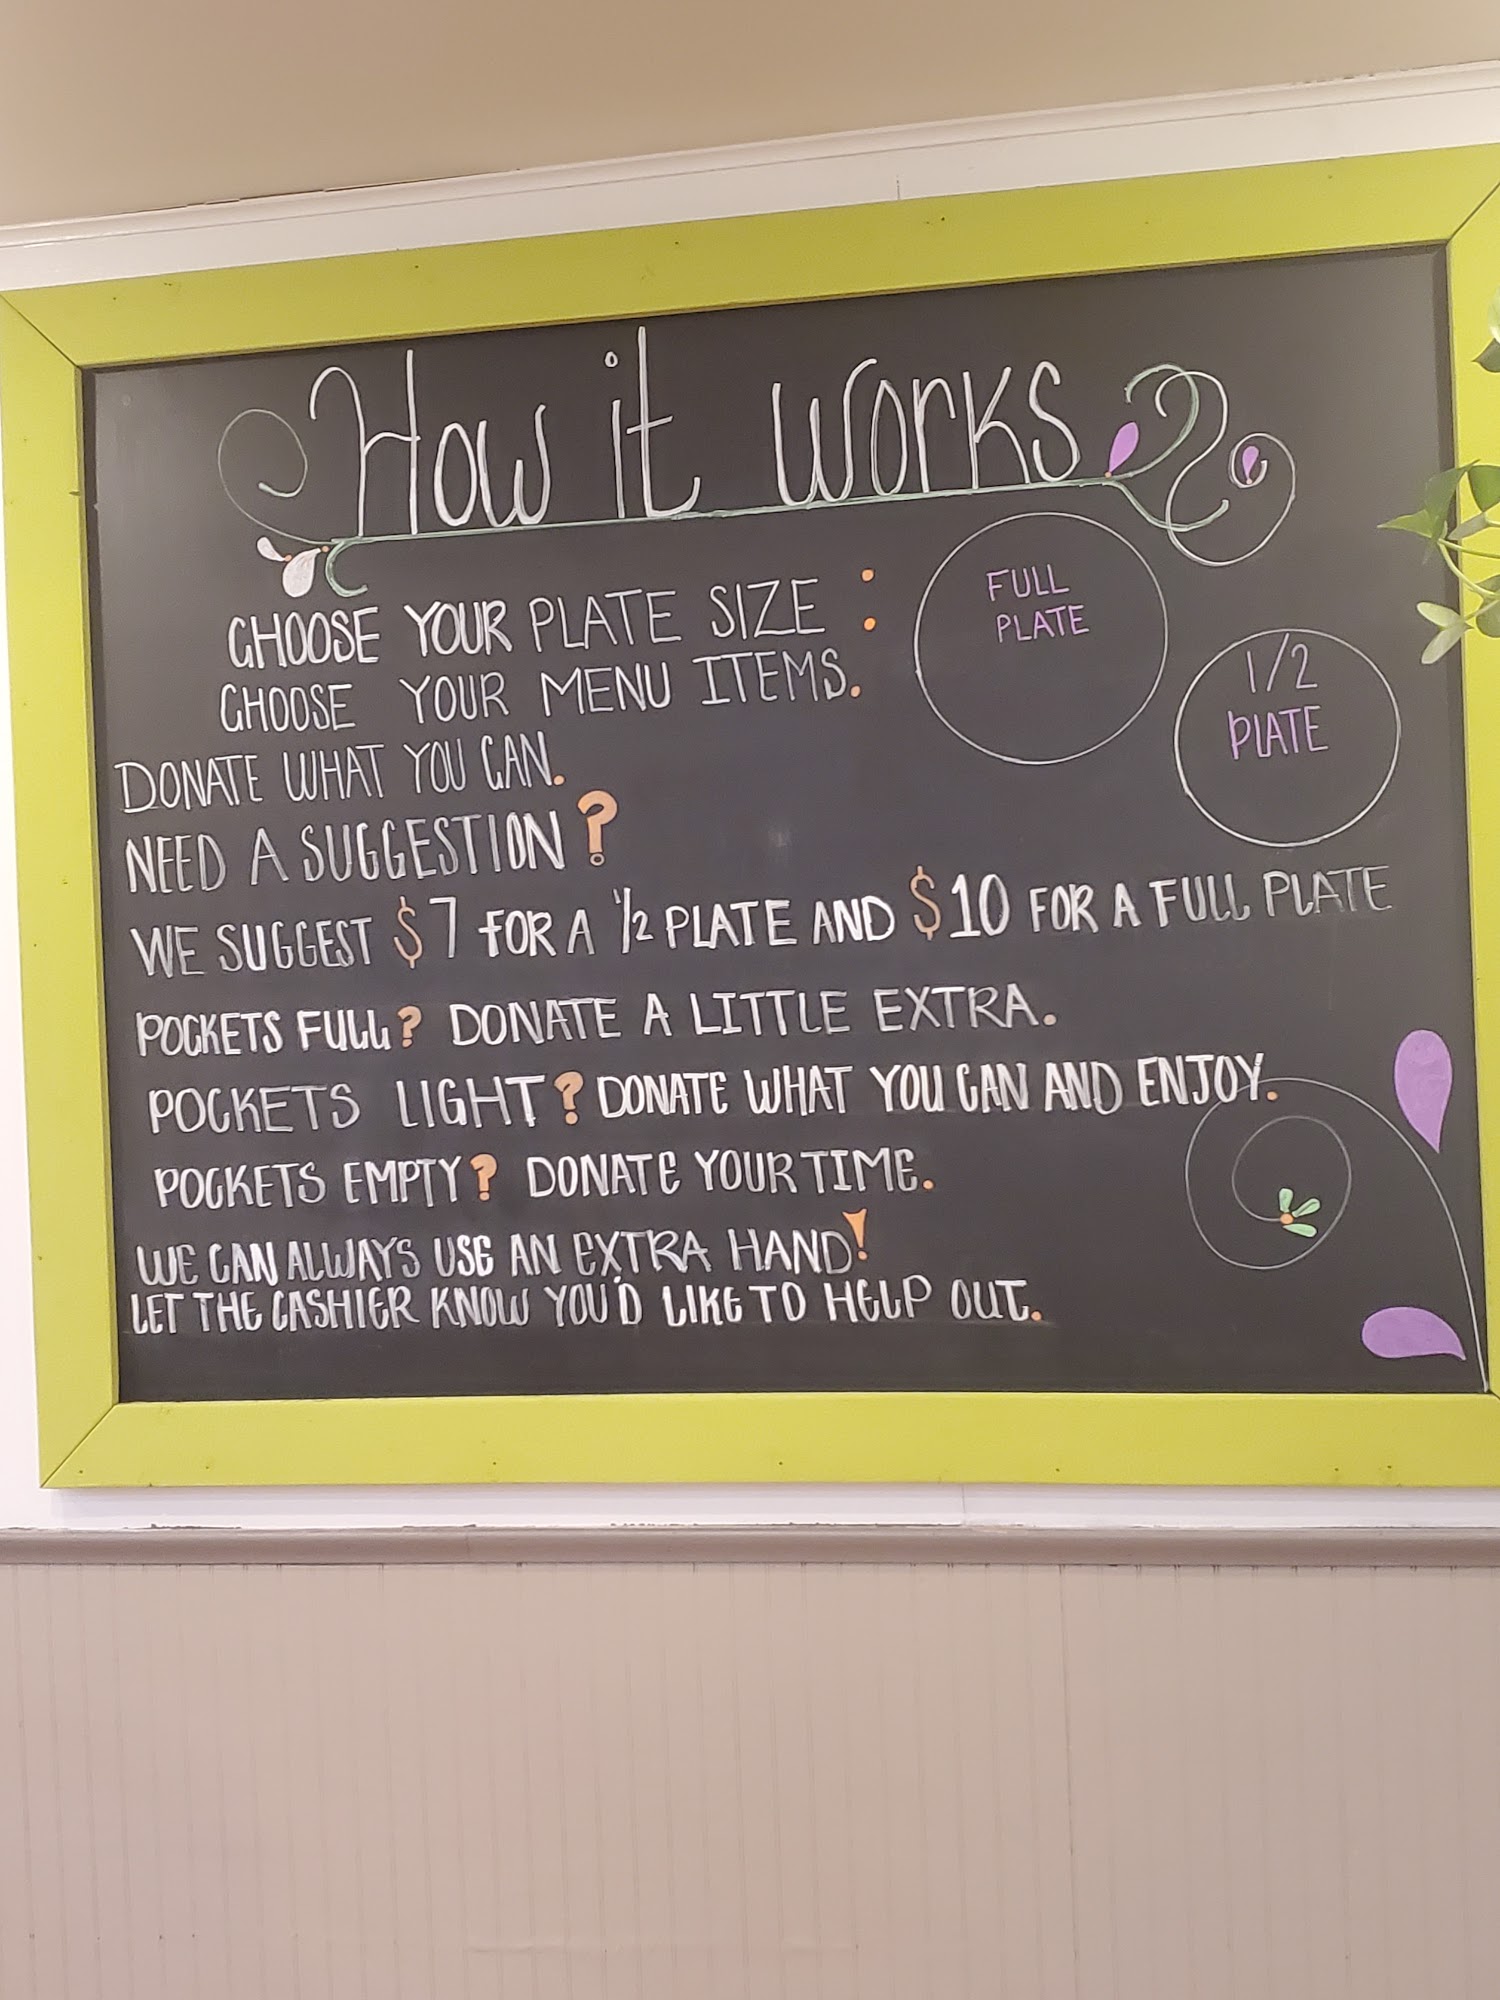 How it works
CHOOSE YOUR PLATE SIZE :
FULL
PLATE
1/2
PLATE
CHOOSE YOUR MENU ITEMS.
DONATE WHAT YOU CAN.
NEED A SUGGESTION?
WE SUGGEST $7 FOR A 1/2 PLATE AND $10 FOR A FULL PLATE
POCKETS FULL? DONATE A LITTLE EXTRA.
POCKETS LIGHT? DONATE WHAT YOU CAN AND ENJOY.
POCKETS EMPTY? DONATE YOUR TIME.
WE CAN ALWAYS USE AN EXTRA HAND!
LET THE CASHIER KNOW YOU'D LIKE TO HELP OUT.